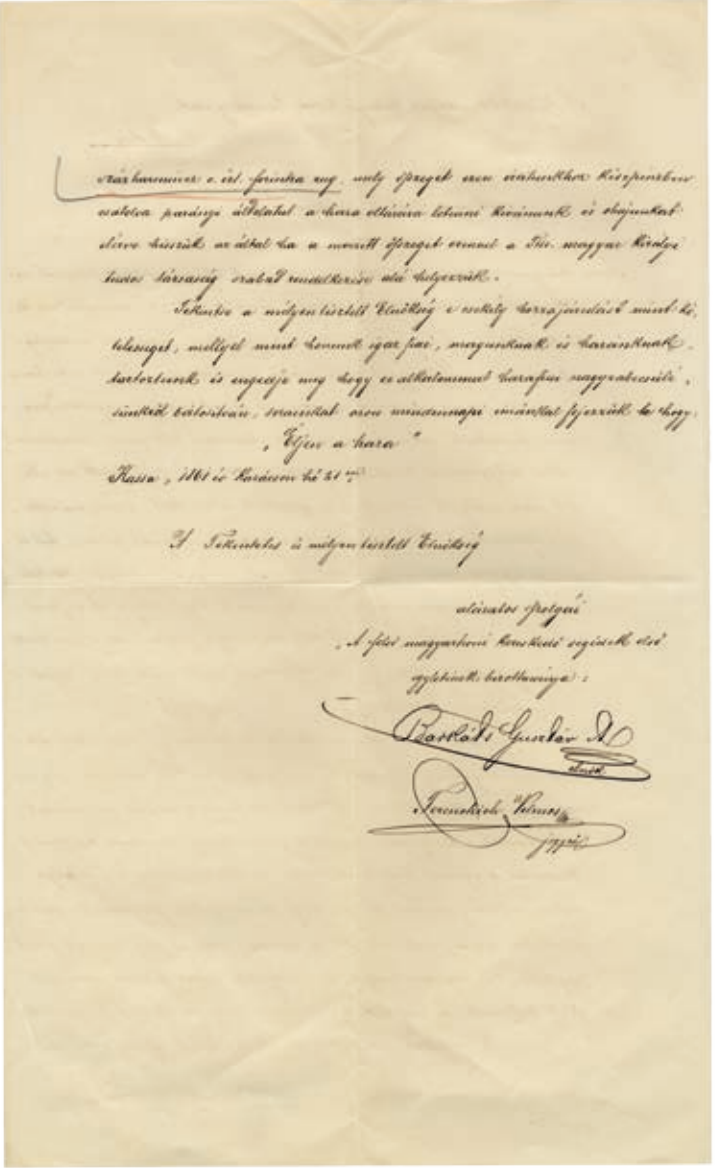 Százharmincz o. ért. forintra rug, mely öszeget ezen iratunkhoz készpénzben
csatolva parányi áldozatul a haza oltárára letenni kivánunk és ohajunkat
elérve hisszük az által ha a nevezett öszeget ezennel a Tek. magyar királyi
tudós társaság szabad rendelkezése alá helyezzük.
Tekintse a mélyen tisztelt Elnökség e csekély hozzájárulást mint kö,
telességet, mellyel mint honunk igaz fiai, magunknak és hazánknak
tartoztunk és engedje meg hogy ez alkalommal hazafiui nagyrabecsülé,
sünkről biztositván, sorainkat azon mindennapi imánkal fejezzük be hogy:
„Éljen a haza"
Kassa, 1861 év Karácson hó 21 én
A Tekintetes és mélyen tisztelt Elnökség
alázatos szolgái
„A felső magyarhoni kereskedő segédek első
egyletének bizottmánya:
Gusztáv A
elnök.
Vilmos
jegyző